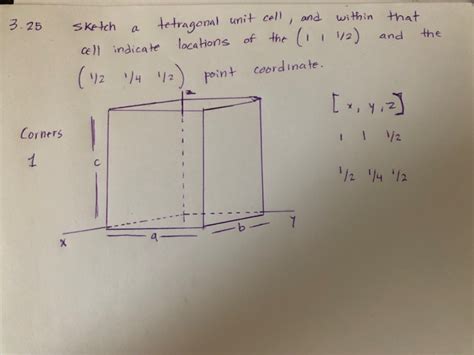 3.25 Sketch a tetragonal unit cell, and within that
cell indicate locations of the (1 1 1/2) and the
(1/2 1/4 1/2) point coordinate.
z
[x, y, z]
Corners
1
1 1 1/2
c
1/2 1/4 1/2
x
a
b
y